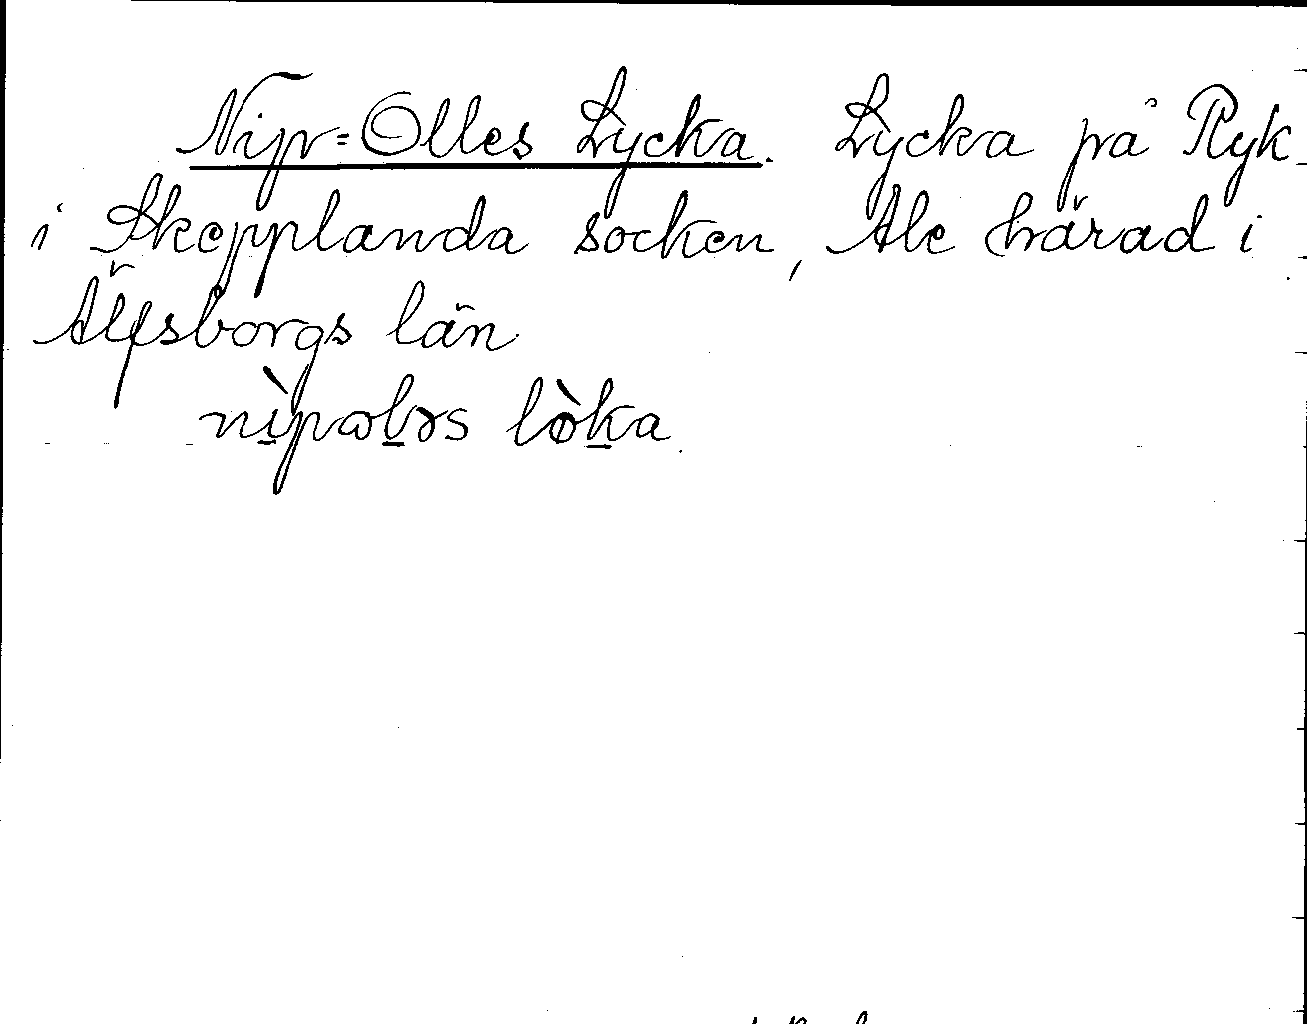 Nip=Olles Lycka. Lycka på Ryk
i Skepplanda socken, Ale härad i
Älfsborgs län.
nìpɷlɘs lòka.